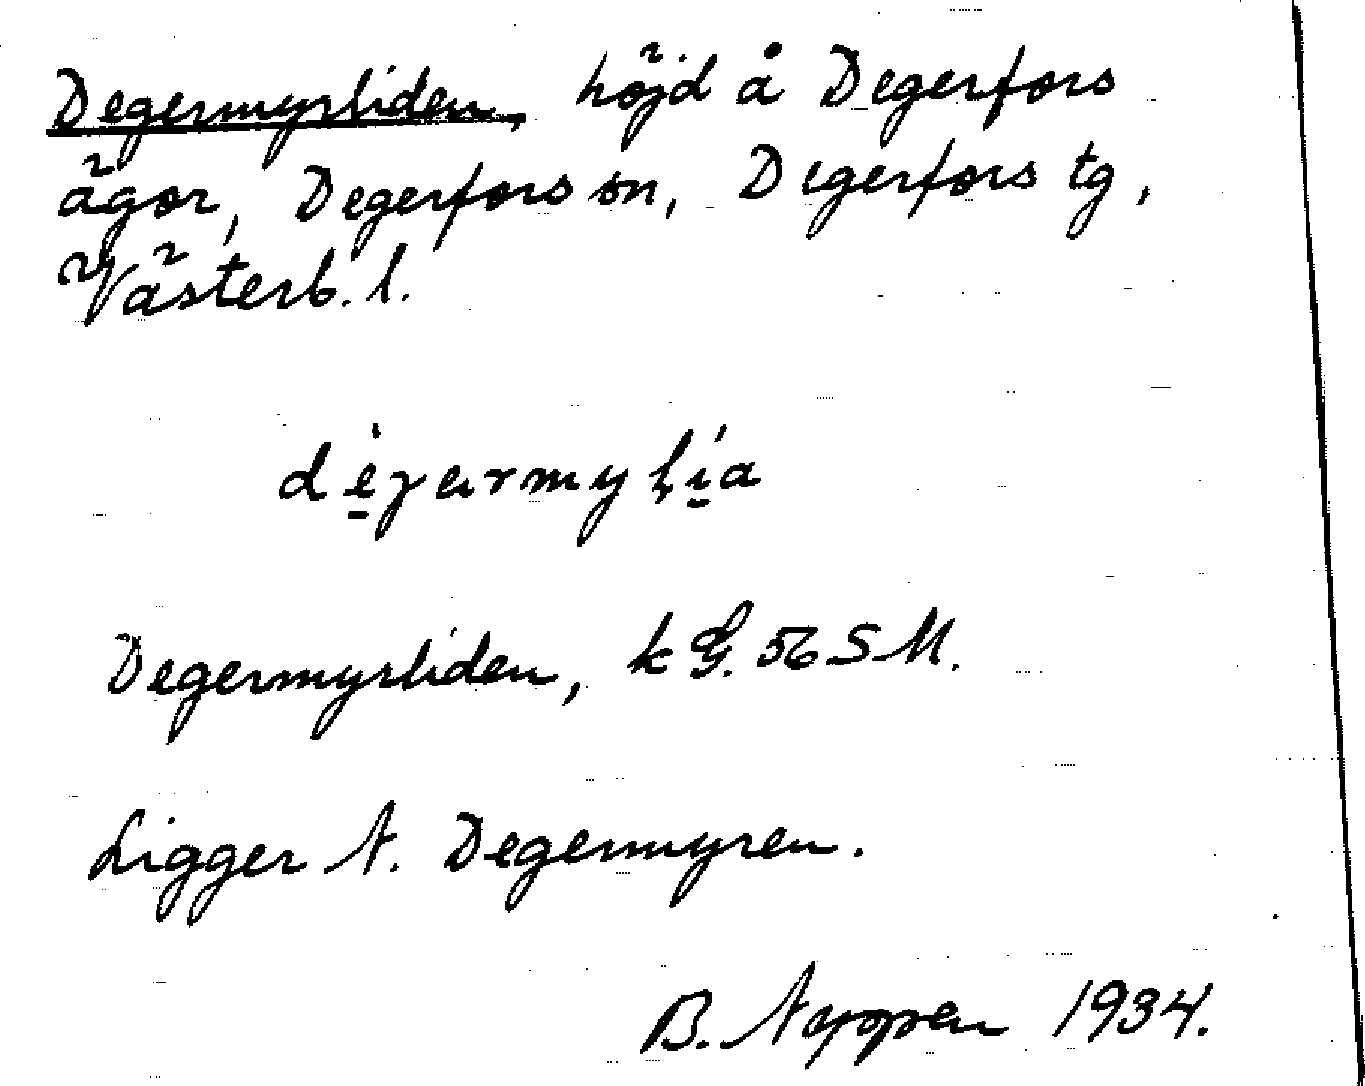 Degermyrliden, höjd å Degerfors
ägor, Degerfors sn, Degerfors tg,
Västerb. l.
Degermyrliden, k G. 56 S M.
Ligger N. Degermyren.
B. 1934.